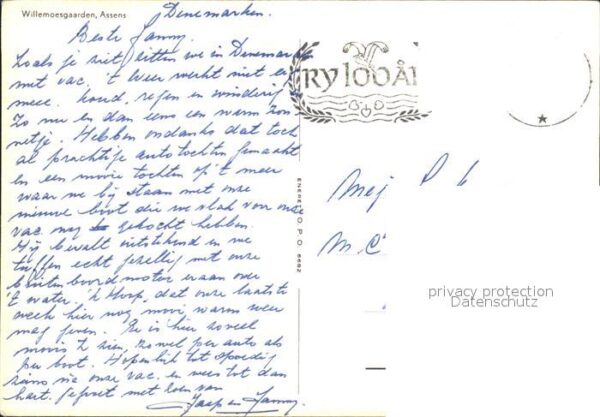 Willemoesgaarden, Assens
Denemarken.
Beste Janny.
Zoals je ziet zitten we in Denemarken
met vac. 't Weer werkt niet er
mee. koud, regen en winderig.
Zo nu en dan eens een warm zon
netje. Hebben ondanks dat toch
al prachtige autotochten gemaakt
en een mooie tochten op 't meer
waar we bij staan met onze
nieuwe boot die we vlak voor onze
vac. nog gekocht hebben.
Hij bevalt uitstekend en we
tuffen echt gezellig met onze
buitenboordmotor eraan over
't water. k Hoop, dat onze laatste
week hier nog mooi, warm weer
mag geven. Er is hier zoveel
moois te zien, zowel per auto als
per boot. Hopenlijk tot spoedig
ziens na onze vac. en wees tot dan
hart. gegroet met zoen van
Jaap en Janny.
RY 1000 ÅR
ENERET O.P.O. 6692
Mej P
M. C
privacy protection
Datenschutz